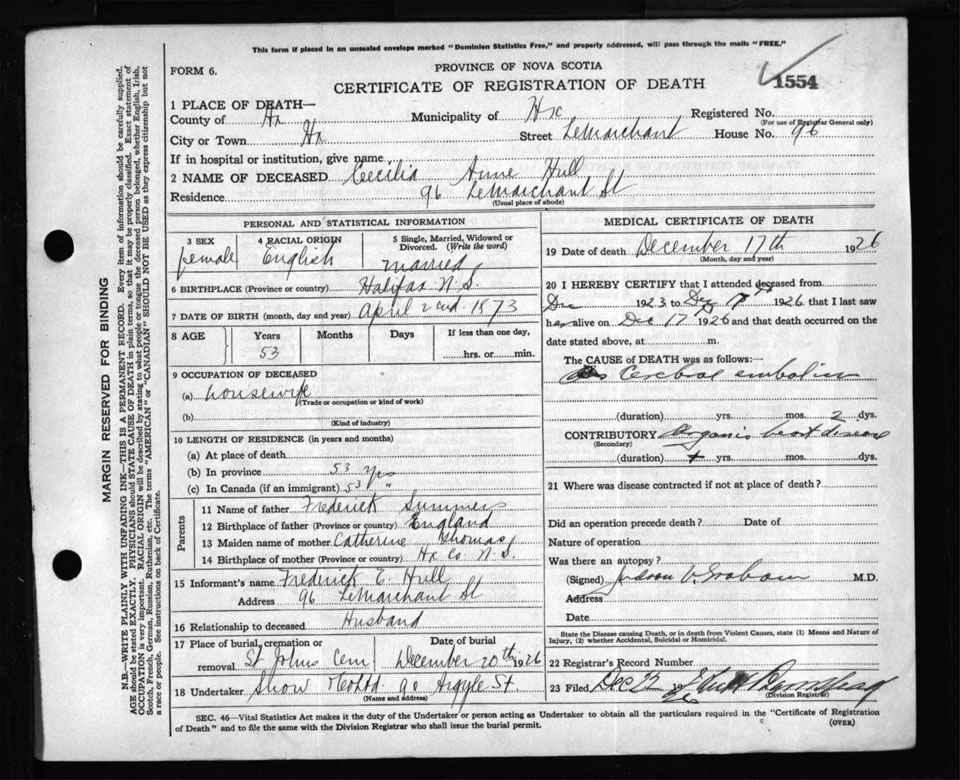 This form if placed in an unsealed envelope marked "Dominion Statistics Free," and properly addressed, will pass through the mails "FREE."
FORM 6.
PROVINCE OF NOVA SCOTIA
CERTIFICATE OF REGISTRATION OF DEATH
1554
1 PLACE OF DEATH—
County of Hx Municipality of Hx Registered No.
(For use of Registrar General only)
City or Town Hx Street LeMarchant House No. 96
If in hospital or institution, give name
2 NAME OF DECEASED Cecilia Anne Hull
Residence 96 LeMarchant St
(Usual place of abode)
PERSONAL AND STATISTICAL INFORMATION
3 SEX female
4 RACIAL ORIGIN English
5 Single, Married, Widowed or Divorced. (Write the word) married
6 BIRTHPLACE (Province or Country) Halifax N.S.
7 DATE OF BIRTH (month, day and year) April 2nd 1873
8 AGE Years 53 Months Days If less than one day, hrs. or min.
9 OCCUPATION OF DECEASED
(a) housewife
(Trade or occupation or kind of work)
(b)
(Kind of industry)
10 LENGTH OF RESIDENCE (in years and months)
(a) At place of death
(b) In province 53 yrs
(c) In Canada (if an immigrant) 53 "
Parents
11 Name of father Frederick Summers
12 Birthplace of father (Province or country) England
13 Maiden name of mother Catherine Thomas
14 Birthplace of mother (Province or country) Hx Co. N.S.
15 Informant's name Frederick E. Hull
Address 96 LeMarchant St
16 Relationship to deceased Husband
17 Place of burial, cremation or removal St Johns Cem Date of burial December 20th 1926
18 Undertaker Snow 90 Argyle St.
(Name and address)
MEDICAL CERTIFICATE OF DEATH
19 Date of death December 17th 1926
(Month, day and year)
20 I HEREBY CERTIFY that I attended deceased from
Dec 1923 to Dec 17th 1926 that I last saw
her alive on Dec 17 1926 and that death occurred on the
date stated above, at m.
The CAUSE OF DEATH was as follows:
Cerebral embolism
(duration) yrs. mos. 2 dys.
CONTRIBUTORY Organic heart disease
(Secondary)
(duration) yrs. mos. dys.
21 Where was disease contracted if not at place of death?
Did an operation precede death? Date of
Nature of operation
Was there an autopsy?
(Signed) Judson V. Graham M.D.
Address
Date
State the Disease causing Death, or in death from Violent Causes, state (1) Means and Nature of Injury, (2) whether Accidental, Suicidal or Homicidal.
22 Registrar's Record Number
23 Filed Dec 22 1926
(Division Registrar)
SEC. 46—Vital Statistics Act makes it the duty of the Undertaker or person acting as Undertaker to obtain all the particulars required in the "Certificate of Registration
of Death" and to file the same with the Division Registrar who shall issue the burial permit.
(OVER)
MARGIN RESERVED FOR BINDING
N.B.—WRITE PLAINLY WITH UNFADING INK—THIS IS A PERMANENT RECORD. Every item of information should be carefully supplied,
AGE should be stated EXACTLY. PHYSICIANS should STATE CAUSE OF DEATH in plain terms, so that it may be properly classified. Exact statement of
OCCUPATION is very important. RACIAL ORIGIN will be described by stating to what people or tongue the deceased person belonged, whether English, Irish,
Scotch, French, German, Russian, Ruthenian, etc. The terms "AMERICAN" or "CANADIAN" SHOULD NOT BE USED as they express citizenship but not
a race or people. See instructions on back of Certificate.